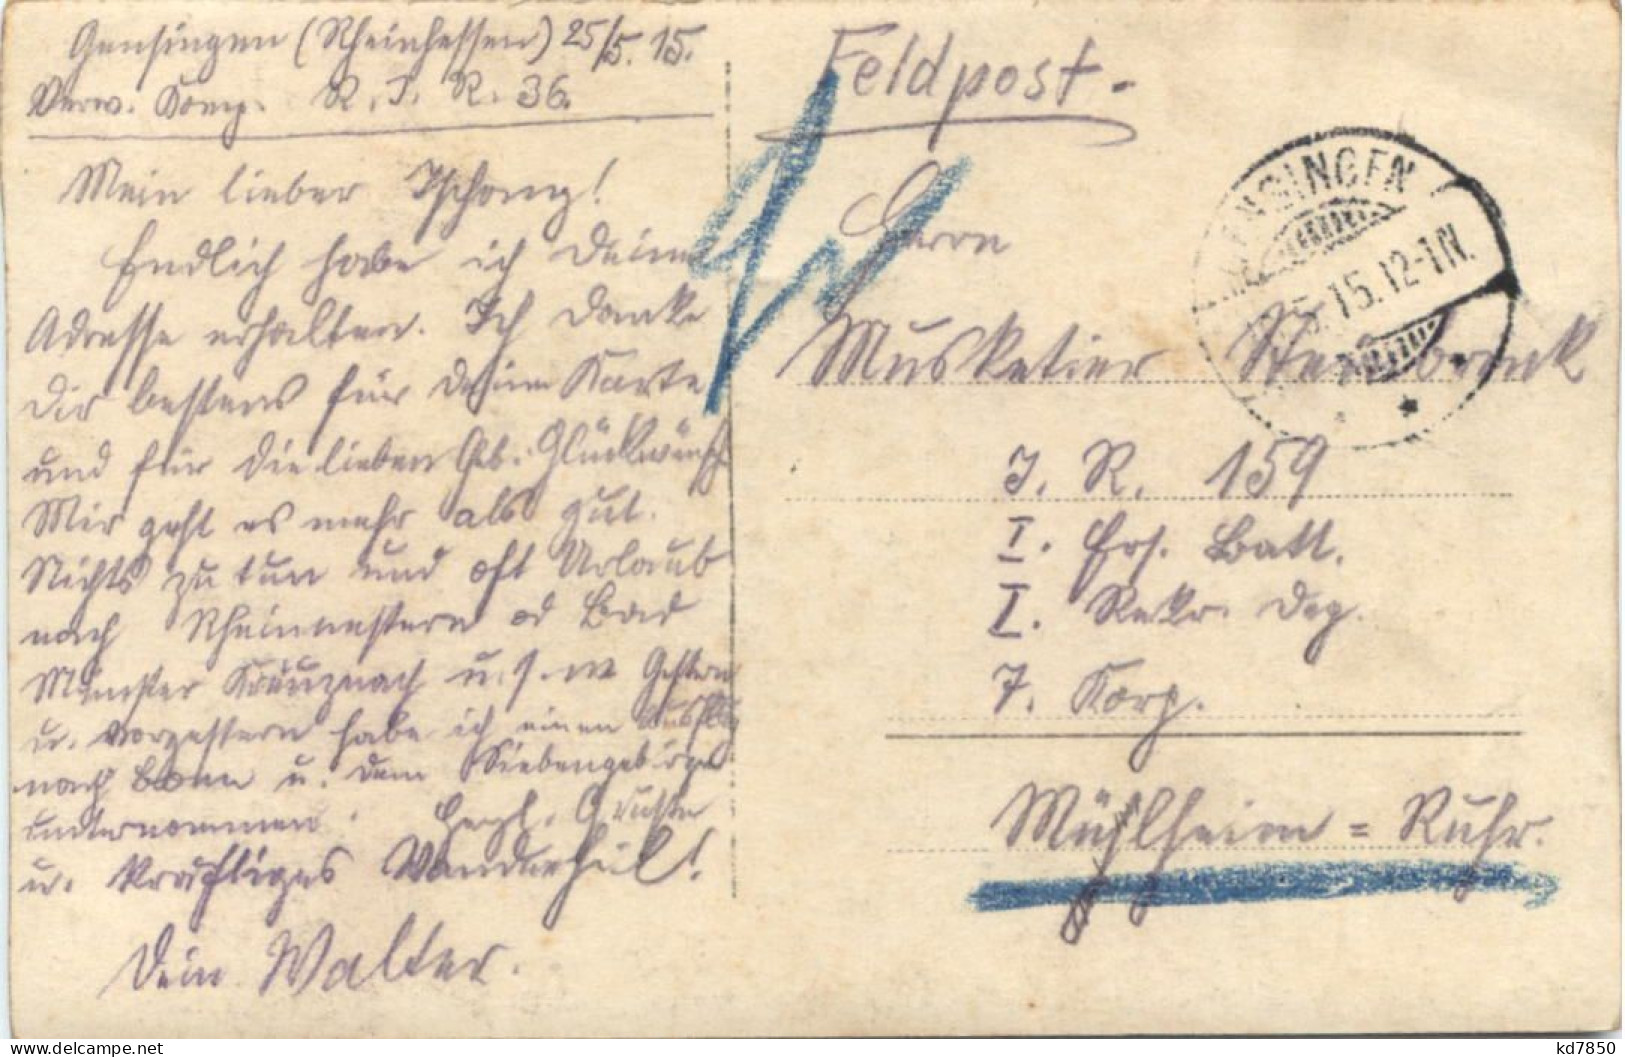 Gensingen (Rheinhessen) 25/5. 15.
Verw. Komp. R. I. R. 36.
Mein lieber Tschong!
Endlich habe ich Deine
Adresse erhalten. Ich danke
Dir bestens für Deine Karte
und für die lieben Geb. Glückwünsch
Mir geht es mehr als gut.
Nichts zu tun und oft Urlaub
nach Rheinnestern od Bad
Münster Kreuznach u. s. w Gestern
u. vorgestern habe ich einen Ausflug
nach Bonn u. dem Siebengebirge
unternommen. Herzl. Grüsse
u. kräftiges Wanderheil!
Dein Walter.
Feldpost.
Herrn
Musketier
I. R. 159
I. Ers. Batt.
I. Rekr. Dep.
7. Korp.
Mühlheim = Ruhr.
GENSINGEN
5.15.12-1N.
kd7850